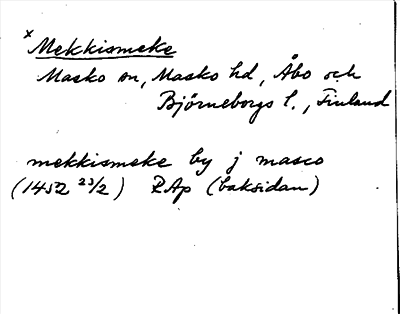 x Mekkismeke
Masko sn, Masko hd, Åbo och
Björneborgs l., Finland
mekkismeke by j masco
(1452 23/2) RAp (baksidan)